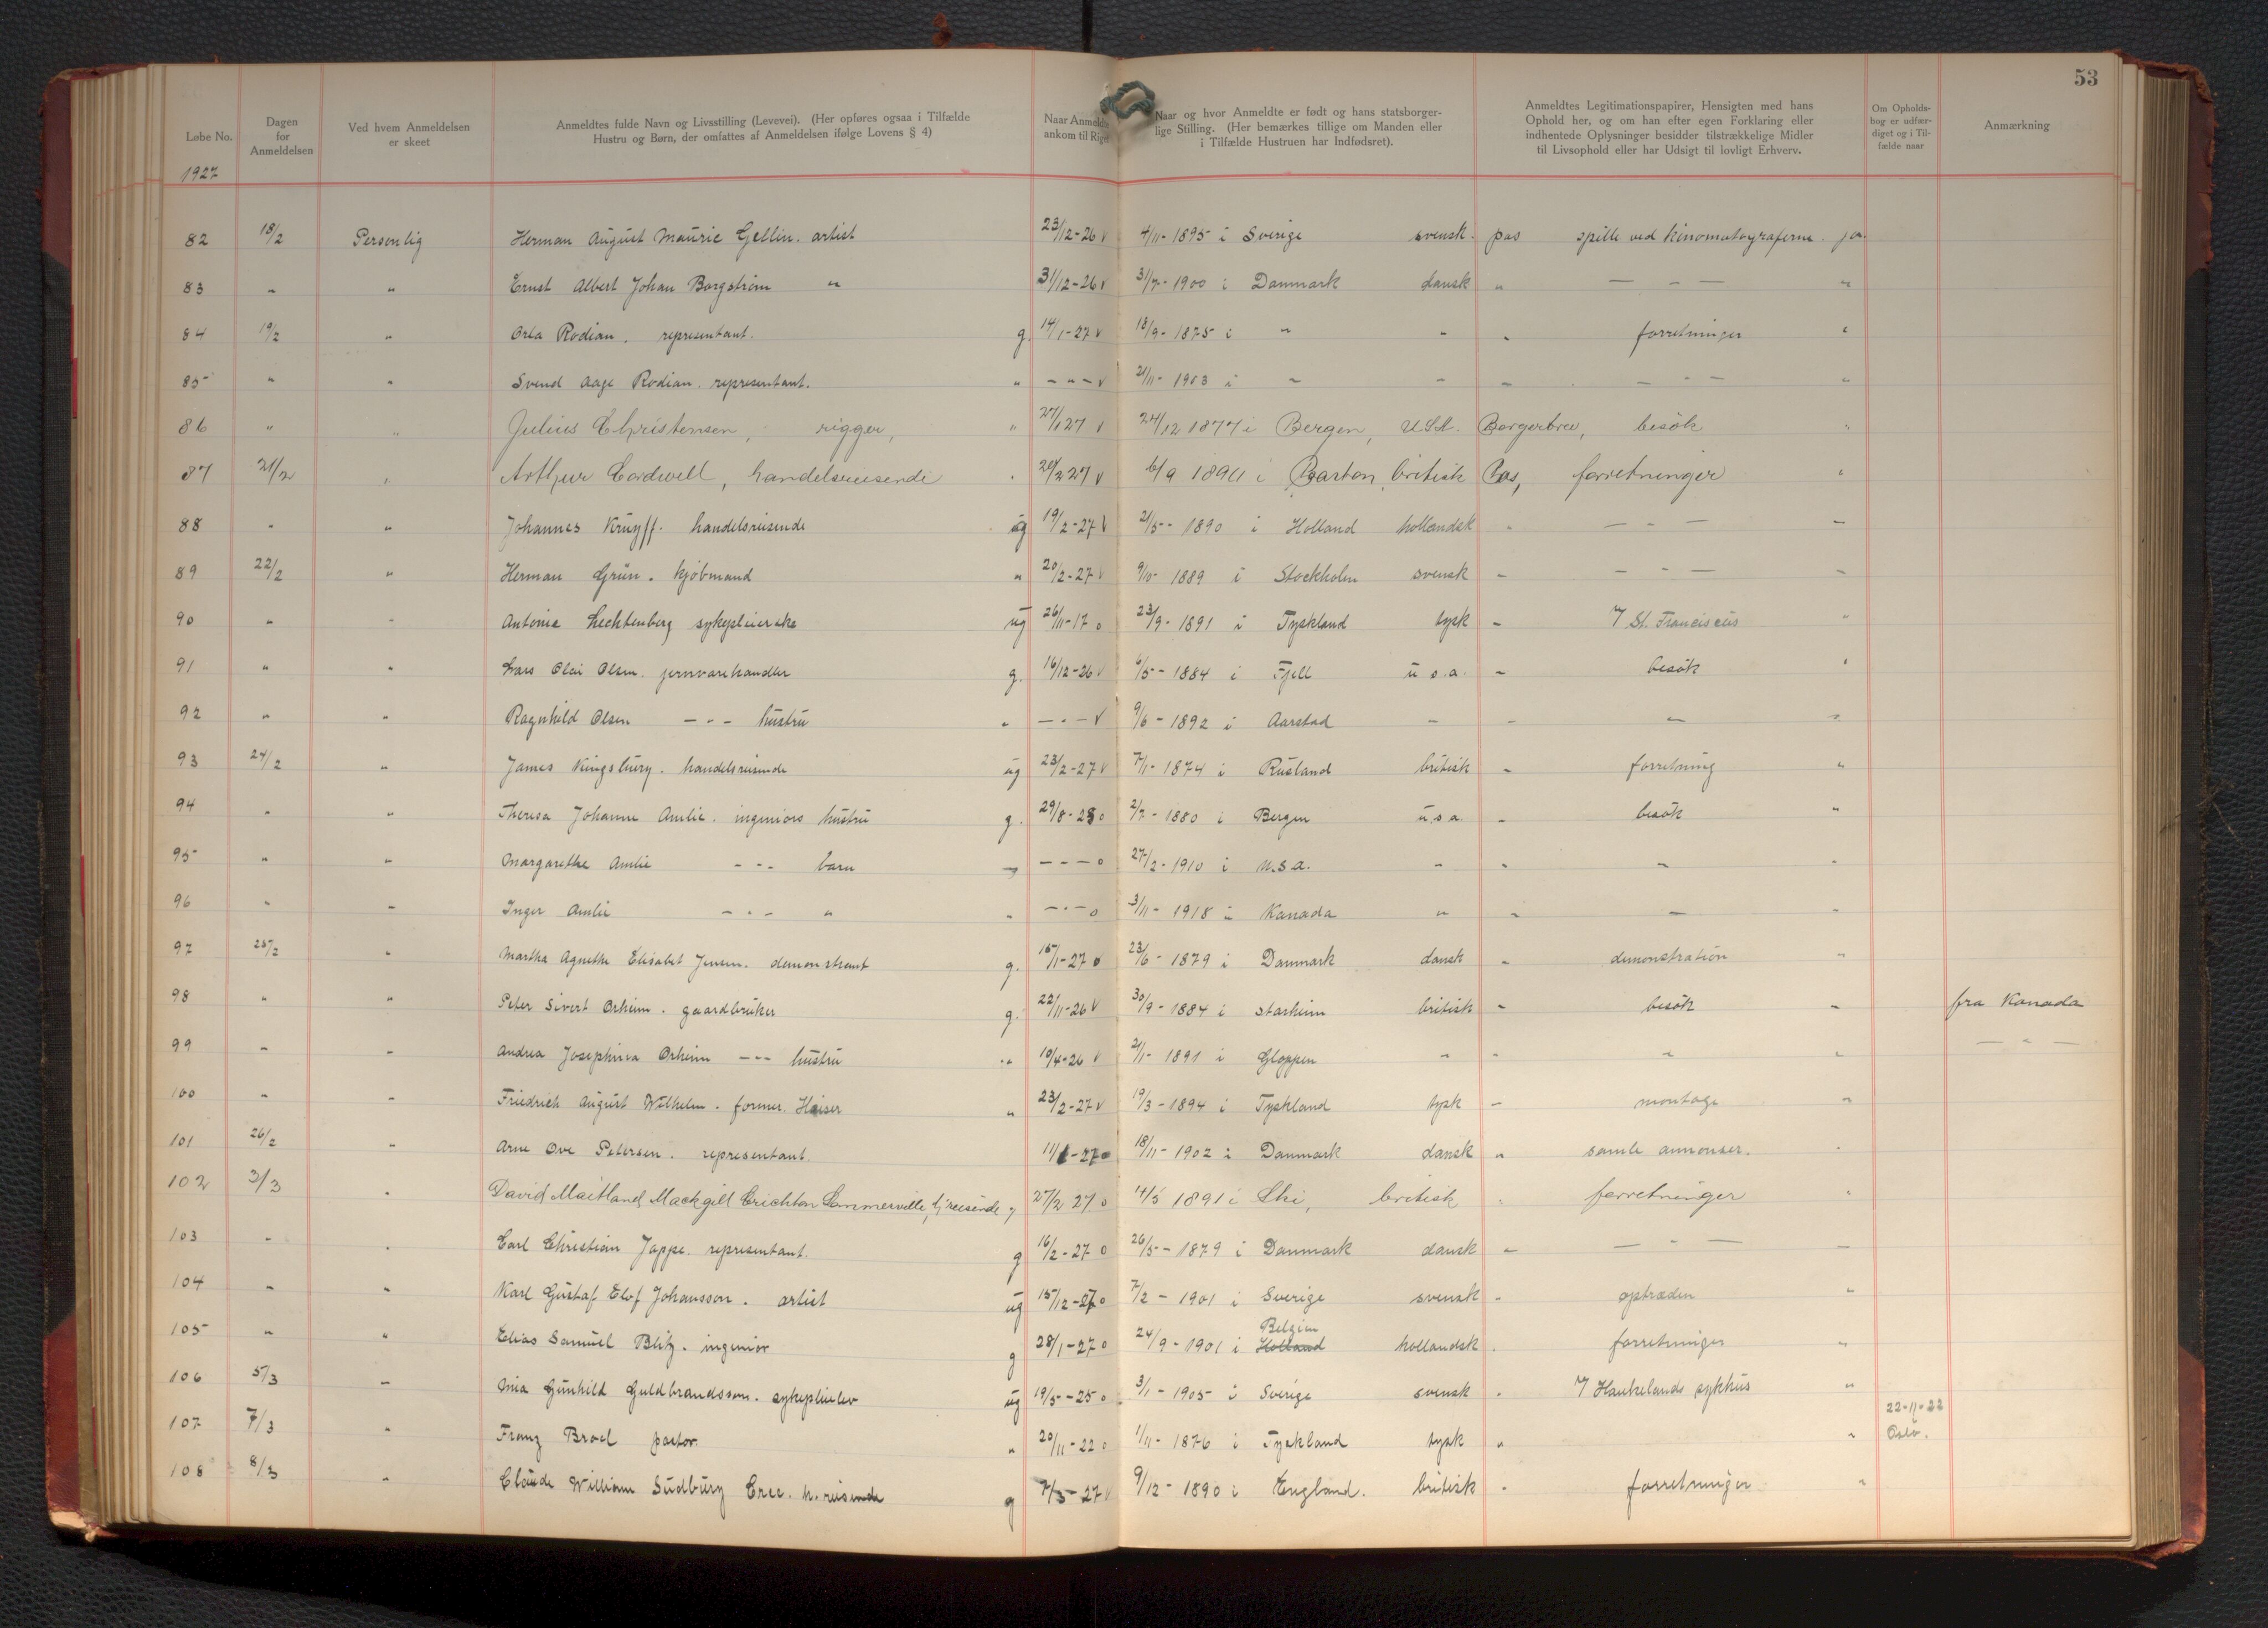 53
Løbe No.
Dagen for Anmeldelsen
Ved hvem Anmeldelsen er skeet
Anmeldtes fulde Navn og Livsstilling (Levevei). (Her opføres ogsaa i Tilfælde Hustru og Børn, der omfattes af Anmeldelsen ifølge Lovens § 4)
Naar Anmeldte ankom til Riget
Naar og hvor Anmeldte er født og hans statsborgerlige Stilling. (Her bemærkes tillige om Manden eller i Tilfælde Hustruen har Indfødsret).
Anmeldtes Legitimationspapirer, Hensigten med hans Ophold her, og om han efter egen Forklaring eller indhentede Oplysninger besidder tilstrækkelige Midler til Livsophold eller har Udsigt til lovligt Erhverv.
Om Opholdsbog er udfærdiget og i Tilfælde naar
Anmærkning
1927
82 18/2 Personlig Herman August Maurie Gellin. artist 23/12-26 v 4/11-1895 i Sverige svensk. pas spille ved kinomatograferne. ja.
83 " " Ernst Albert Johan Borgstrøm " 31/12-26 v 3/7-1900 i Danmark dansk " — " —
84 19/2 " Orla Rodian. representant. g. 14/1-27 v 18/9-1875 i " " " forretninger "
85 " " Svend Aage Rodian. representant. " — " — v 21/11-1903 i " " " — " — "
86 " " Julius Christensen, rigger, " 27/1 27 v 24/12 1877 i Bergen, USA. Borgerbrev, besök "
87 21/2 " Arthur Cardwell, handelsreisende " 20/2 27 v 6/9 1894 i Barton, britisk Pas, forretninger "
88 " " Johannes Kruyff. handelsreisende ug 19/2-27 v 21/5-1890 i Holland hollandsk " — " — "
89 22/2 " Herman Grün. kjøbmand " 20/2-27 v 9/10-1889 i Stockholm svensk " — " — "
90 " " Antonie Lechtenberg sykepleierske ug 26/11-17 o 23/9-1891 i Tyskland tysk " v/ St. Franciscus "
91 " " Lars Olai Olsen. jernvarehandler g. 16/12-26 v 6/5-1884 i Fjell u.s.a. " besök "
92 " " Ragnhild Olsen — " — hustru " — " — v 9/6-1892 i Aarstad " " " "
93 24/2 " James Kingsbury. handelsreisende ug 23/2-27 v 7/1-1874 i Rusland britisk " forretning "
94 " " Theresa Johanne Amlie. ingeniørs hustru g. 29/8-23 o 2/7-1880 i Bergen u.s.a. " besök "
95 " " Margarethe Amlie — " — barn — — " — o 27/2-1910 i U.S.A. " " " "
96 " " Inger Amlie — " — " " — " — o 3/11-1918 i Kanada " " " "
97 25/2 " Martha Agnethe Elisabet Jensen. demonstrant g. 15/1-27 o 23/6-1879 i Danmark dansk " demonstration "
98 " " Peter Sivert Orheim. gaardbruker g. 22/11-26 v 30/9-1884 i Starheim britisk " besök " fra Kanada
99 " " Andrea Josephina Orheim — " — hustru " 10/4-26 v 2/1-1891 i Gloppen " " " " — " —
100 " " Friedrich August Wilhelm. former. Heiser " 23/2-27 v 19/3-1894 i Tyskland tysk " montage "
101 26/2 " Arne Ove Petersen. representant. 11/1-27 o 18/11-1902 i Danmark dansk " samle annonser. "
102 3/3 " David Maitland Mackgill Crichton Sommerville, h/reisende g 27/2 27 o 14/5 1891 i Ski, britisk " forretninger "
103 " " Carl Christian Jappe. representant. g 16/2-27 o 26/5-1879 i Danmark dansk " — " — "
104 " " Karl Gustaf Elof Johansson. artist ug 15/12-26 o 7/2-1901 i Sverige svensk " optræden "
105 " " Elias Samuel Blitz. ingeniør g 28/1-27 o 24/9-1901 i Holland Belgien hollandsk " forretninger "
106 5/3 " Mia Gunhild Guldbrandsson. sykepleielev ug 19/5-25 o 3/1-1905 i Sverige svensk " v/ Haukelands sykhus "
107 7/3 " Franz Brod pastor. " 20/11-22 o 1/11-1876 i Tyskland tysk " " 22-11-22 Oslo.
108 8/3 " Claude William Sudbury Cree. h.reisende g 7/3-27 v 9/12-1890 i England. britisk " forretninger "